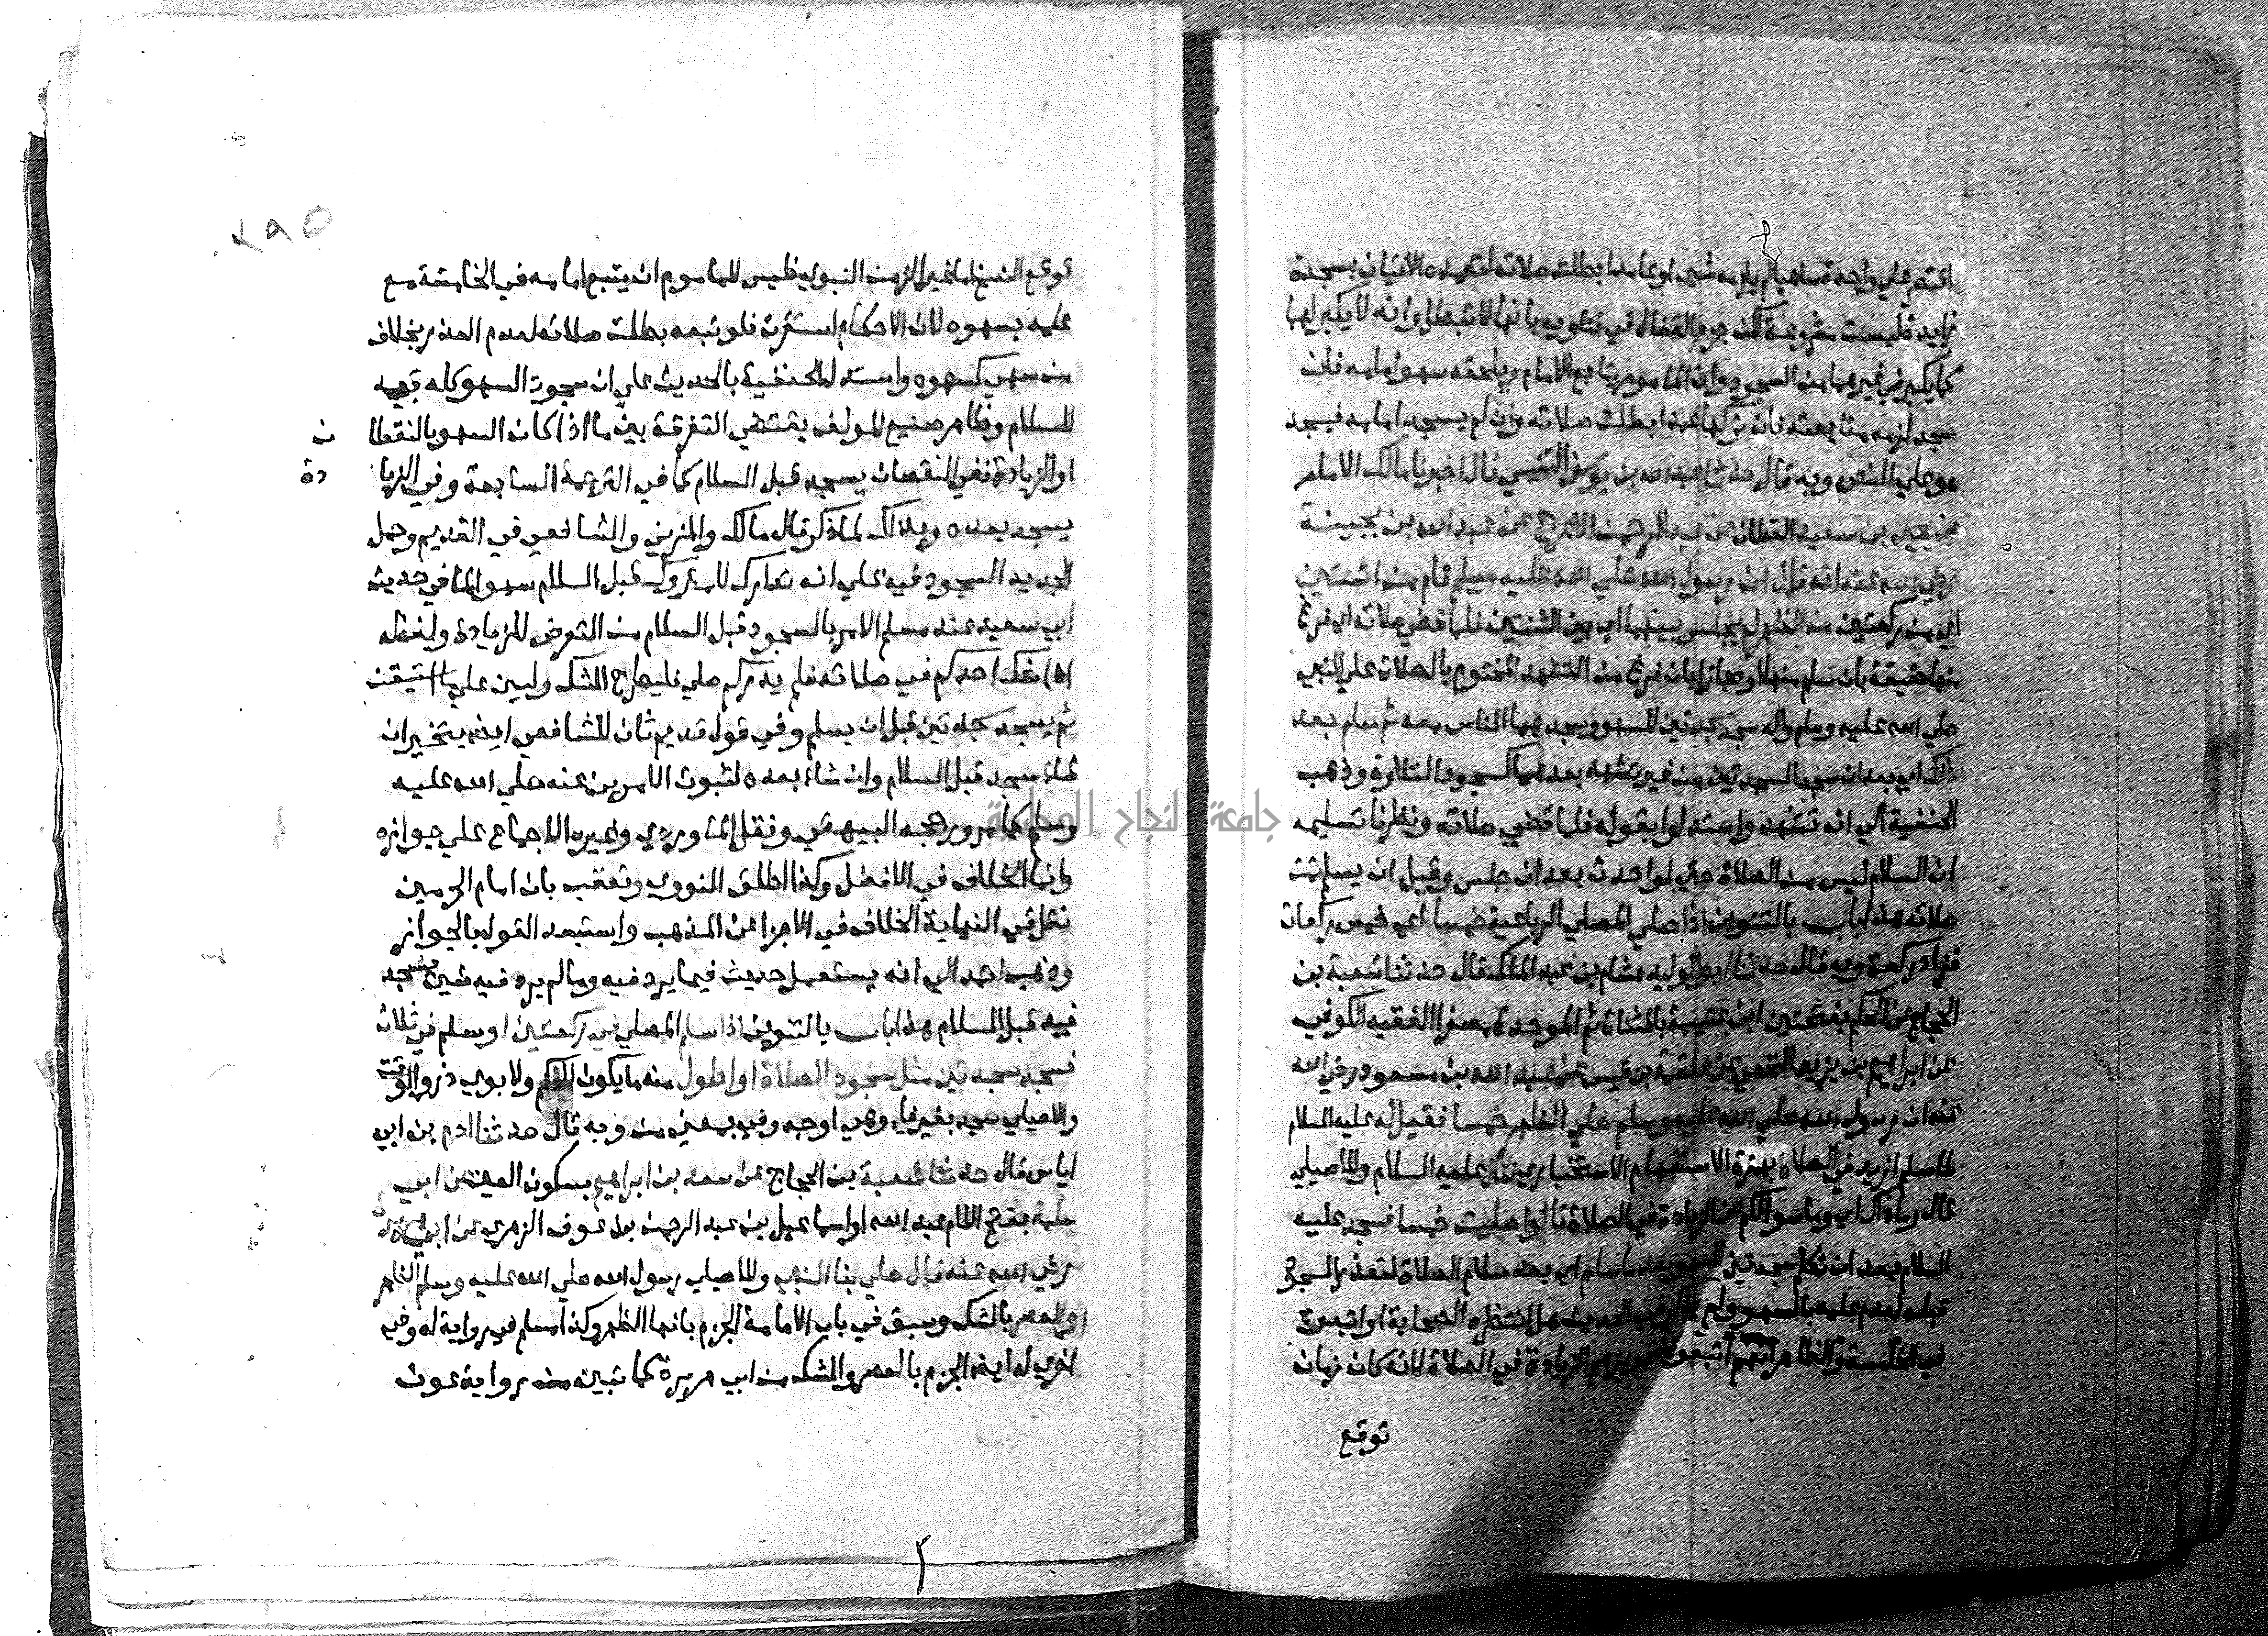 اقتصر علي واحدة ساهيا لم يلزمه شي او عامدا بطلت صلاته لتعمده الاتيان بسجدة
زايدة ليست مشروعة لكن جزم القفال في فتاويه بانها لا تبطل وانه لا يكبر لهما
كما يكبر في غيرهما من السجود وان الماموم يتابع الامام ويلحقه سهو امامه فان
سجد لزمه متابعته فان تركها عمدا بطلت صلاته وان لم يسجد امامه فيسجد
هو علي النص وبه قال حدثنا عبد الله بن يوسف التنيسي قال اخبرنا مالك الامام
عن يحيي بن سعيد القطان عن عبد الرحمن الاعرج عن عبد الله بن بحينة
رضي الله عنه انه قال ان رسول الله صلي الله عليه وسلم قام من اثنتين
اي من ركعتين من الظهر لم يجلس بينهما اي بين الثنتين فلما قضي صلاته اي فرغ
منها حقيقة بان سلم منها او مجازا بان فرغ من التشهد المختوم بالصلاة علي النبي
صلي الله عليه وسلم واله سجد سجدتين للسهو وسجدهما الناس معه ثم سلم بعد
ذلك اي بعد ان سجد السجدتين من غير تشهد بعدهما كسجود التلاوة وذهب
الحنفية الي انه تشهد واستدلوا بقوله فلما قضي صلاته ونظرنا تسليمه
ان السلام ليس من الصلاة حتي لو احدث بعد ان جلس وقبل ان يسلم تمت
صلاته هذا باب بالتنوين اذا صلي المصلي الرباعية خمسا اي خمس ركعات
فزاد ركعة وبه قال حدثنا ابو الوليد هشام بن عبد الملك قال حدثنا شعبة بن
الحجاج عن الحكم بفتحتين ابن عتيبة بالمثناة ثم الموحدة مصغرا الفقيه الكوفي
عن ابراهيم بن يزيد النخعي عن علقمة بن قيس عن عبد الله بن مسعود رضي الله
عنه ان رسول الله صلي الله عليه وسلم صلي الظهر خمسا فقيل له عليه السلام
لما سلم ازيد في الصلاة بهمزة الاستفهام الاستخباري قال عليه السلام وللاصيلي
قال وما ذاك اي وما سوالكم عن الزيادة في الصلاة قالوا صليت خمسا فسجد عليه
السلام بعد ان تكلم سجدتين للسهو بعد ما سلم اي بعد سلام الصلاة لتعذر السجود
قبله لعدم علمه بالسهو ولم يذكر في الحديث هل انتظره الصحابة او اتبعوه
في الخامسة والظاهر انهم اتبعوه لتجويزهم الزيادة في الصلاة لانه كان زمان
توقع
٢٩٥
توقع النسخ اما غير الزمن النبوي فليس للماموم ان يتبع امامه في الخامسة مع
علمه بسهوه لان الاحكام استقرت فلو تبعه بطلت صلاته لعدم العذر بخلاف
من سهي كسهوه واستدل الحنفية بالحديث علي ان سجود السهو كله بعد
السلام وظاهر صنيع المولف يقتضي التفرقة بين ما اذا كان السهو بالنقصا ن
او الزيادة ففي النقصان يسجد قبل السلام كما في الترجمة السابقة وفي الزيا دة
يسجد بعده وبذلك لما ذكر قال مالك والمزني والشافعي في القديم وحمل
الجديد السجود فيه علي انه تدارك للمتروك قبل السلام سهوا لما في حديث
ابي سعيد عند مسلم الامر بالسجود قبل السلام من التعرض للزيادة ولفظه
اذا شك احدكم في صلاته فلم يدر كم صلي فليطرح الشك وليبن علي ما استيقن
ثم يسجد سجدتين قبل ان يسلم وفي قول قديم ثان للشافعي ايضا يتخير ان
شاء سجد قبل السلام وان شاء بعده لثبوت الامرين عنه صلي الله عليه
وسلم كما مر ورجحه البيهقي ونقل الماوردي وغيره الاجماع علي جوازه
وانما الخلاف في الافضل وكذا اطلق النووي وتعقب بان امام الحرمين
نقل في النهاية الخلاف في الاجزا عن المذهب واستبعد القول بالجواز
وذهب احمد الي انه يستعمل حديث فيما يرد فيه وما لم يرد فيه شي يسجد
فيه قبل السلام هذا باب بالتنوين اذا سلم المصلي في ركعتين او سلم في ثلاث
فسجد سجدتين مثل سجود الصلاة او اطول منه ما يكون الحكم ولابوي ذر والوقت
والاصيلي سجد بغير فاء وهي اوجه وفي بعض من وبه قال حدثنا ادم بن ابي
اياس قال حدثنا شعبة بن الحجاج عن سعد بن ابراهيم بسكون العين عن ابي
سلمة بفتح اللام عبد الله او اسماعيل بن عبد الرحمن بن عوف الزهري عن ابي هريرة
رضي الله عنه قال صلي بنا النبي وللاصيلي رسول الله صلي الله عليه وسلم الظهر
او العصر بالشك وسبق في باب الامامة الجزم بانها الظهر وكذا لمسلم في رواية له وفي
اخري له ايضا الجزم بالعصر والشك من ابي هريرة كما تبين من رواية عون
جامعة النجاح الوطنية